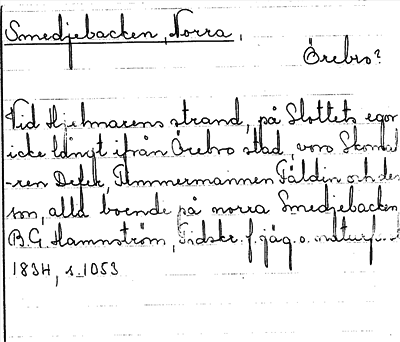 Smedjebacken, Norra,
Örebro?
Vid Hjelmarens strand, på Slottets egor
icke långt ifrån Örebro stad, voro Skomak
-ren Delek, Timmermannen Fäldin och de
son, alla boende på norra Smedjebacken
B.G. Hamnström, Tidskr. f. jäg. o. naturf.
1834, s. 1053